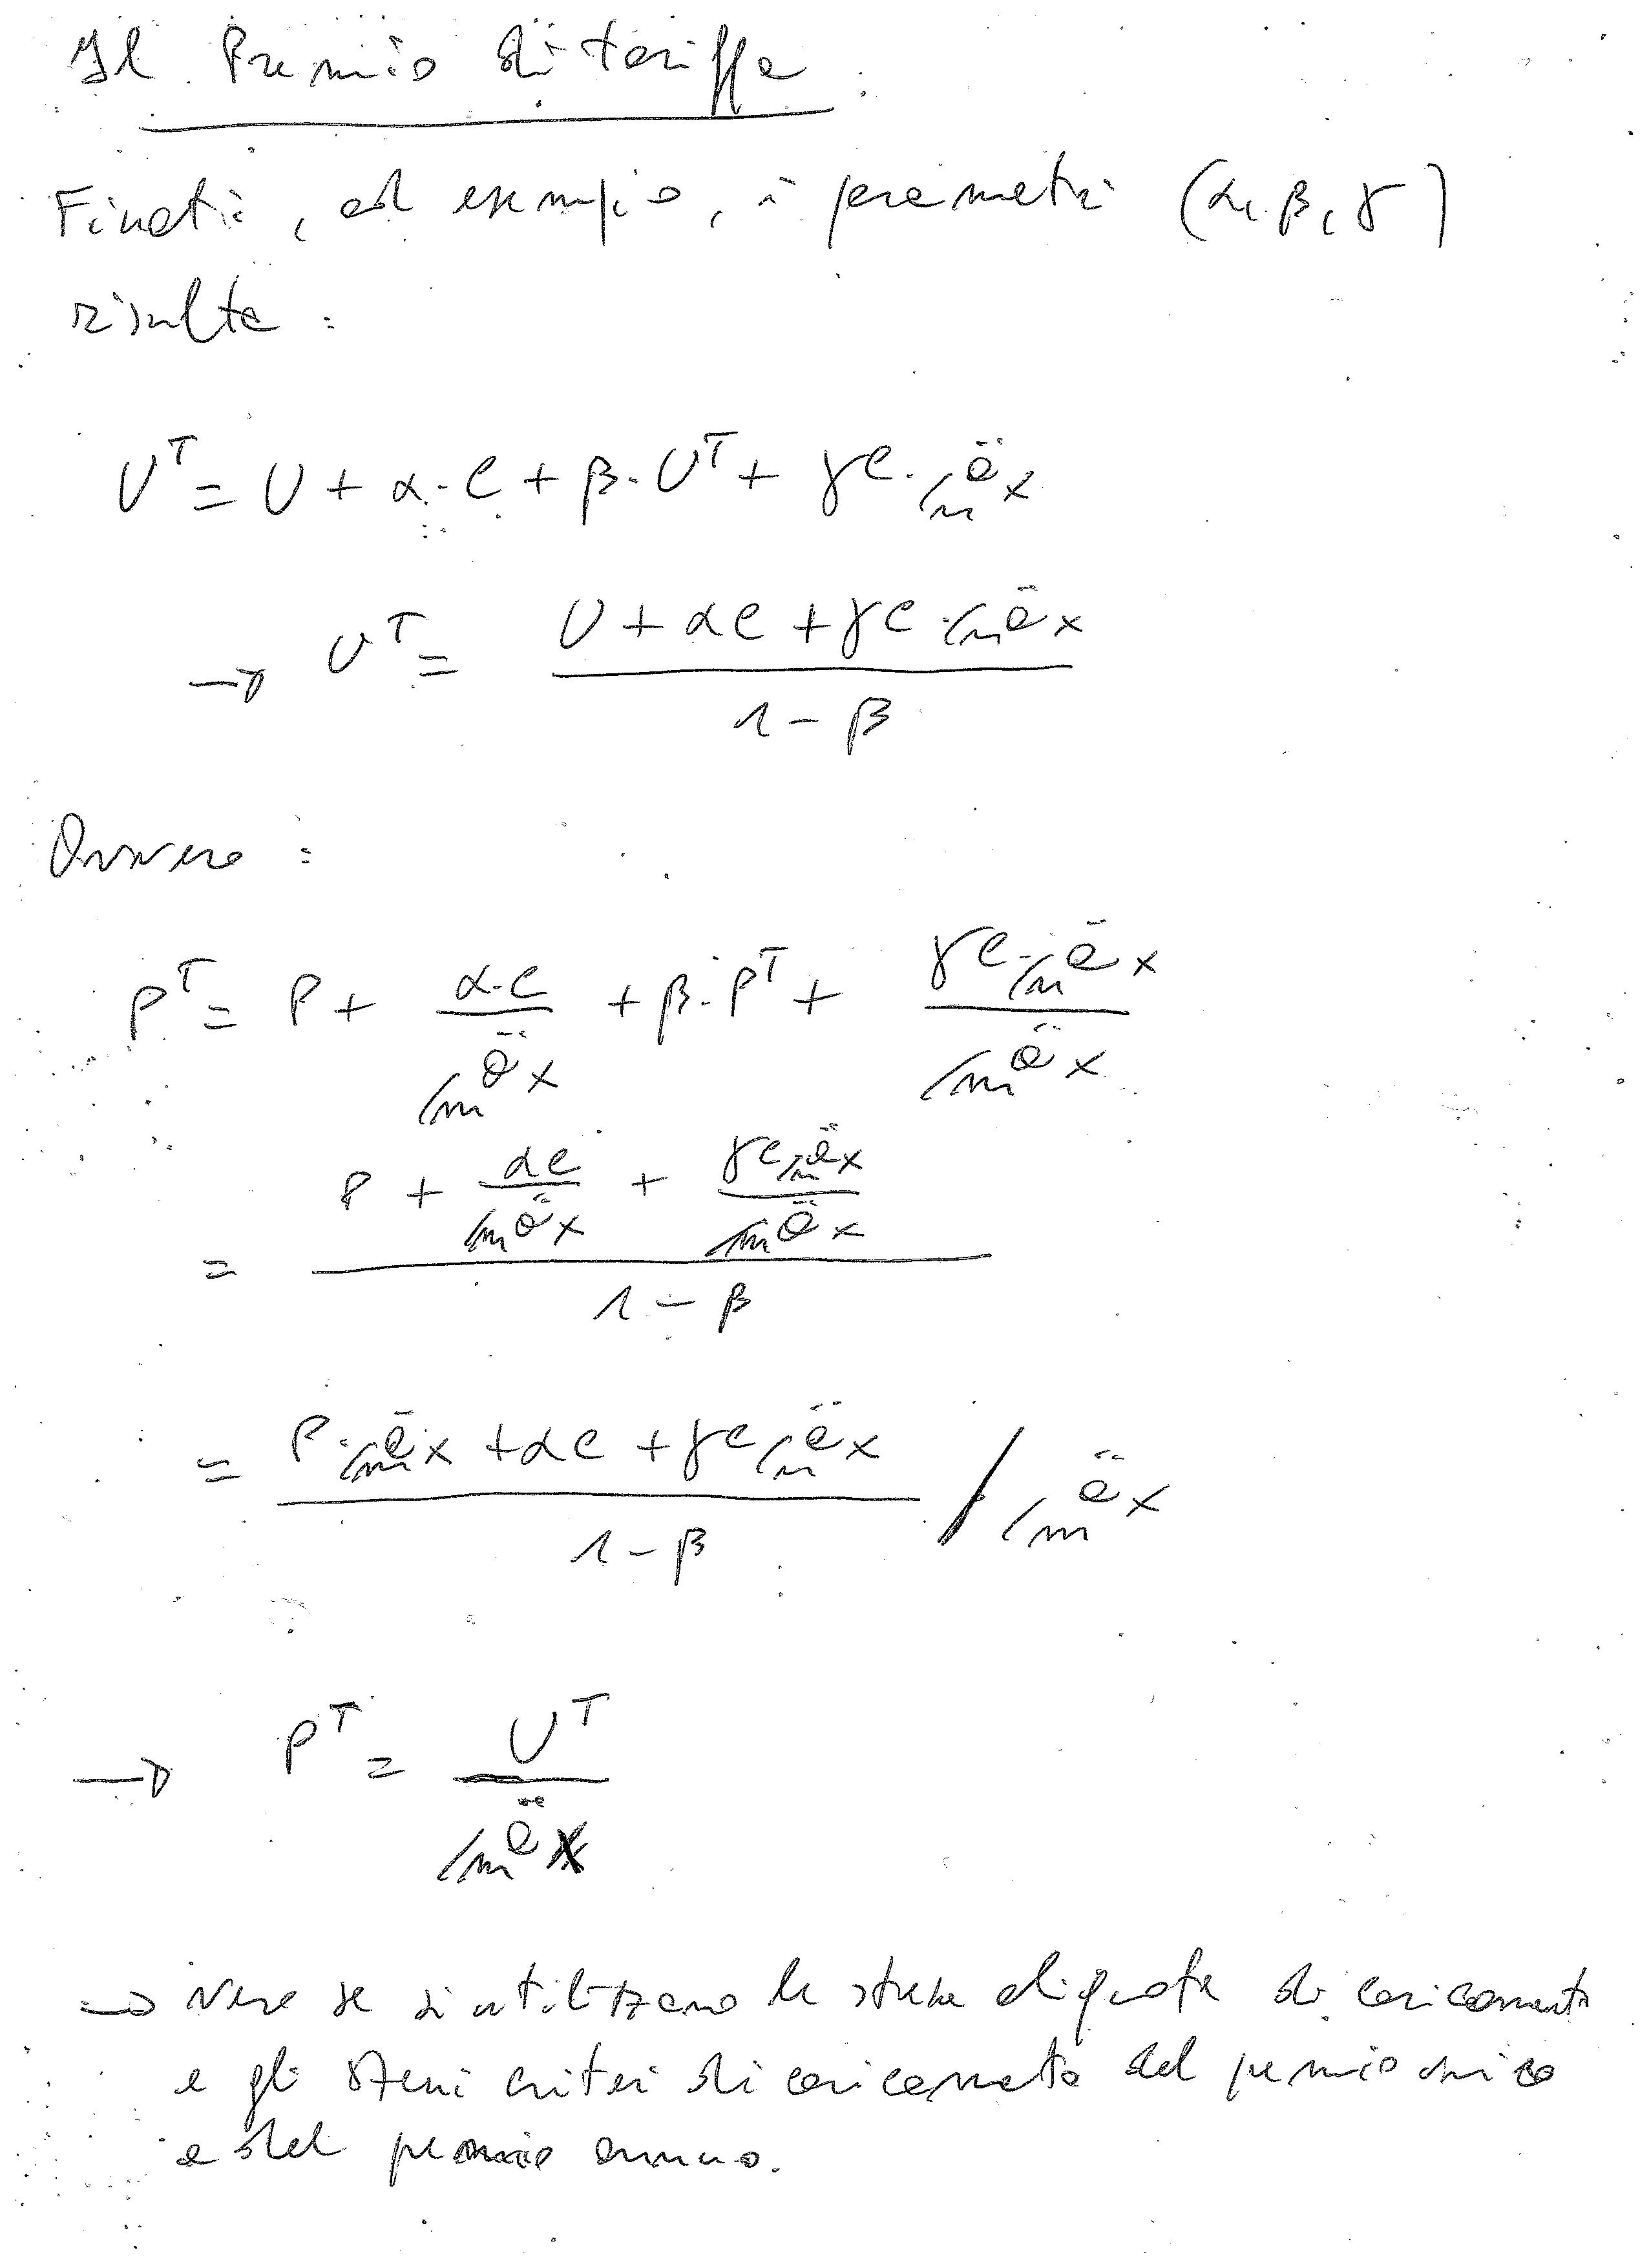 Il Premio di tariffa
Fissati, ad esempio, i parametri (α, β, γ)
risulta:
U^T = U + α·C + β·U^T + γC·/n ä x
→ U^T = (U + αC + γC·/n ä x) / (1 - β)
Ovvero:
P^T = P + (α·C) / (/m ä x) + β·P^T + (γC·/n ä x) / (/m ä x)
= (P + (αC) / (/m ä x) + (γC /n ä x) / (/m ä x)) / (1 - β)
= (P·/m ä x + αC + γC /n ä x) / (1 - β) / /m ä x
→ P^T = U^T / (/m ä x)
→ Vera se si utilizzano le stesse aliquote di caricamento
e gli stessi criteri di caricamento del premio unico
e del premio annuo.